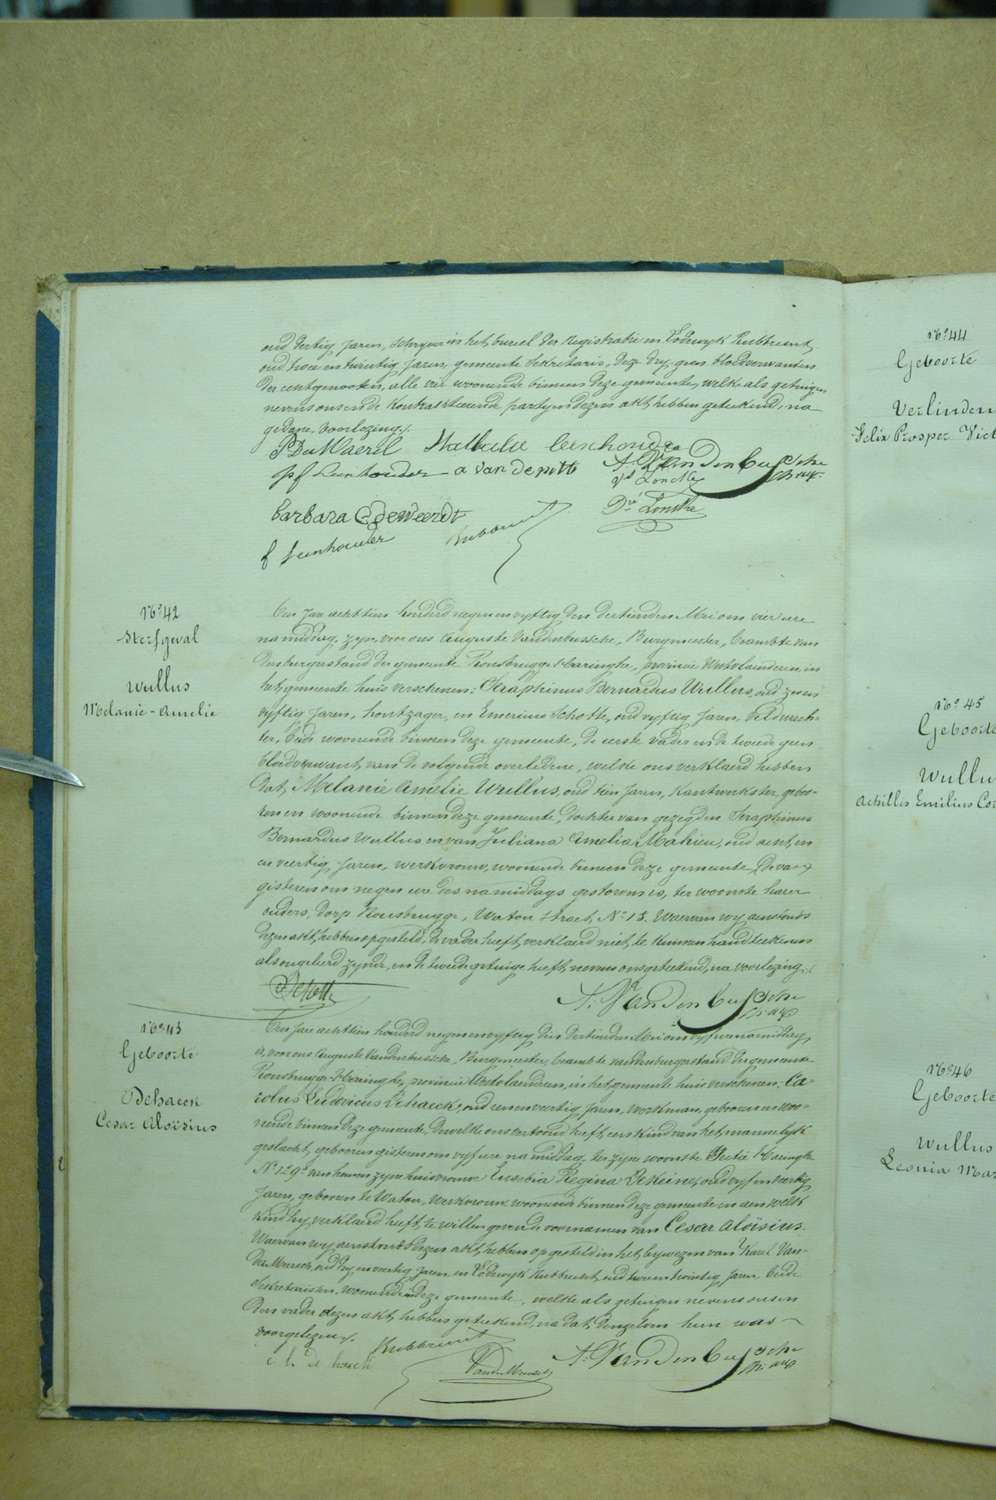 oud dertig jaren, schryver in het bureel der registratie en Lodewyk Rubbrecht,
oud twee en twintig jaren, gemeente sekretaris, deze dry geen bloedverwanten
der echtgenooten, alle vier woonende binnen deze gemeente, welke als getuigen
nevens ons en de kontrakteerende partyen dezen akt hebben geteekend, na
gedane voorlezing./.
Barbara C Deweerdt
A. Vandenbussche
Rubbrecht
No 42
Sterfgeval
Wullus
Melanie-Amelie
Den jaer achttien honderd negen en vyftig den dertienden Mei om vier ure
namiddag, zyn voor ons Auguste Vandenbussche, Burgmeester, beambte van
den burgerstand der gemeente Rousbrugge-Haringhe, provincie Westvlaenderen, in
het gemeente huis verschenen: Seraphinus Bernardus Wullus, oud zeven en
vyftig jaren, houtzager, en Emerinus Schotte, oud vyftig jaren, veldwach-
ter, beide woonende binnen deze gemeente, de eerste vader en de tweede geen
bloedverwant, van de volgende overledene, welke ons verklaerd hebben
dat, Melanie Amelie Wullus, oud tien jaren, kantwerkster, gebo-
ren en woonende binnen deze gemeente, dochter van gezegden Seraphinus
Bernardus Wullus en van Juliana Amelia Mahieu, oud acht en
en veertig jaren, werkvrouw, woonende binnen deze gemeente,
gisteren om negen ure des namiddags gestorven is, ter woonste harer
ouders, dorp Rousbrugge, Watou straet, No 15. Waervan wy aenstonds
dezen akt hebben opgesteld, de vader heeft verklaerd niet te kunnen handteekenen
als ongeleerd zynde, en de tweede getuige heeft nevens ons geteekend, na voorlezing./.
A. Vandenbussche
No 43
Geboorte
Dehaeck
Cesar Aloïsius
Den jaer achttien honderd negen en vyftig, den dertienden Mei om vyf ure namiddag,
is, voor ons Auguste Vandenbussche, Burgmeester, beambte van den burgerstand der gemeente
Rousbrugge-Haringhe, provincie Westvlaenderen, in het gemeente huis verschenen, Ca-
rolus Ludovicus Dehaeck, oud een en veertig jaren, werkman, geboren en woo-
nende binnen deze gemeente, dewelke ons vertoond heeft, een kind van het mannelyk
geslacht, geboren gisteren om vyf ure namiddag, ter zyne woonste Sectie Haringhe
No 129, van hem en zyne huisvrouw Eusebia Regina Dekeine, oud vyf en dertig
jaren, geboren te Watou, werkvrouw, woonende binnen deze gemeente en aen welk
kind hy verklaerd heeft, te willen geven de voornamen van Cesar Aloïsius.
Waervan wy aenstonds dezen akt hebben opgesteld in het bywezen van Karel Van-
de Meersch, oud dry en veertig jaren en Lodewyk Rubbrecht, oud twee en twintig jaren, beide
sekretarissen, woonende in deze gemeente, welke als getuigen nevens ons en
den vader dezen akt hebben geteekend, na dat, dezelven hun was
voorgelezen./.
Rubbrecht
c. l. de haeck
A. Vandenbussche
No 44
Geboorte
Verlinden
Felix Prosper Vict
No 45
Geboorte
Wullu
Achilles Emilius Co
No 46
Geboorte
Wullus
Leonia Mar